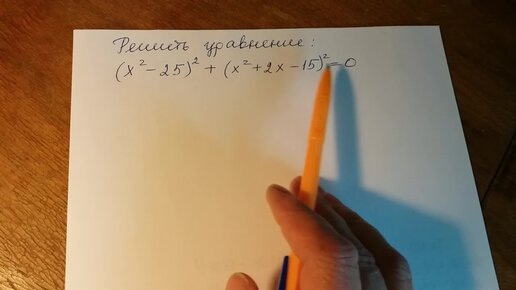 Решить уравнение:
(x² - 25)² + (x² + 2x - 15)² = 0